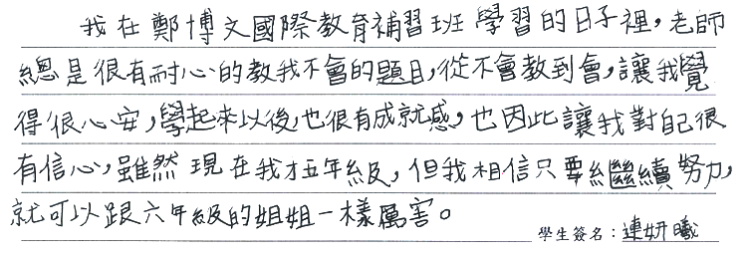 我在鄭博文國際教育補習班學習的日子裡，老師
總是很有耐心的教我不會的題目，從不會教到會，讓我覺
得很心安，學起來以後，也很有成就感，也因此讓我對自己很
有信心，雖然現在我才五年級，但我相信只要繼續努力，
就可以跟六年級的姐姐一樣厲害。
學生簽名：連妍曦